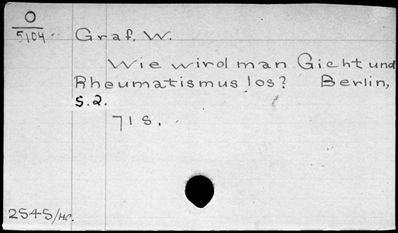 O
5104
Graf, W.
Wie wird man Gicht und
Rheumatismus los? Berlin,
s.a.
71 S.
2545/HC.